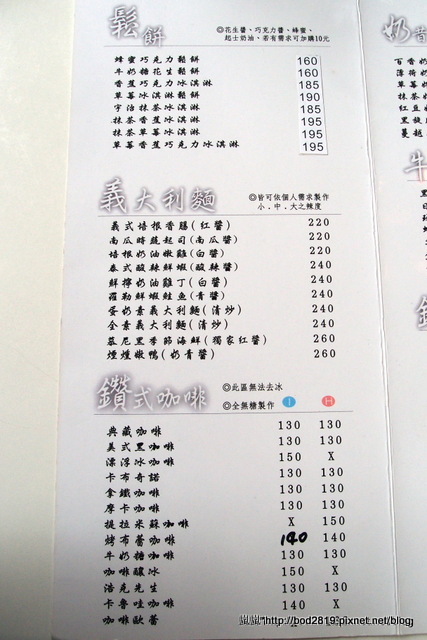 鬆餅
◎花生醬、巧克力醬、蜂蜜、
起士奶油、若有需求可加購10元
蜂蜜巧克力鬆餅 160
牛奶糖花生鬆餅 160
香蕉巧克力冰淇淋 185
草莓冰淇淋鬆餅 190
宇治抹茶冰淇淋 185
抹茶香蕉冰淇淋 195
抹茶草莓冰淇淋 195
草莓香蕉巧克力冰淇淋 195
義大利麵
◎皆可依個人需求製作
小．中．大之辣度
義式培根香腸(紅醬) 220
南瓜時蔬起司(南瓜醬) 220
培根奶油嫩雞(白醬) 220
泰式酸辣鮮蝦(酸辣醬) 240
鮮檸奶油雞丁(白醬) 240
羅勒鮮蝦鮭魚(青醬) 240
蛋奶素義大利麵(清炒) 240
全素義大利麵(清炒) 240
慕尼黑季節海鮮(獨家紅醬) 260
煙燻嫩鴨(奶青醬) 260
鑽式咖啡
◎此區無法去冰
◎全無糖製作 I H
典藏咖啡 130 130
美式黑咖啡 130 130
漂浮冰咖啡 150 X
卡布奇諾 130 130
拿鐵咖啡 130 130
摩卡咖啡 130 130
提拉米蘇咖啡 X 150
烤布蕾咖啡 140 140
牛奶糖咖啡 130 130
咖啡釀冰 150 X
浩克先生 130 130
卡魯哇咖啡 140 X
咖啡歐蕾
奶昔
牛
"http://bod2819.pixnet.net/blog